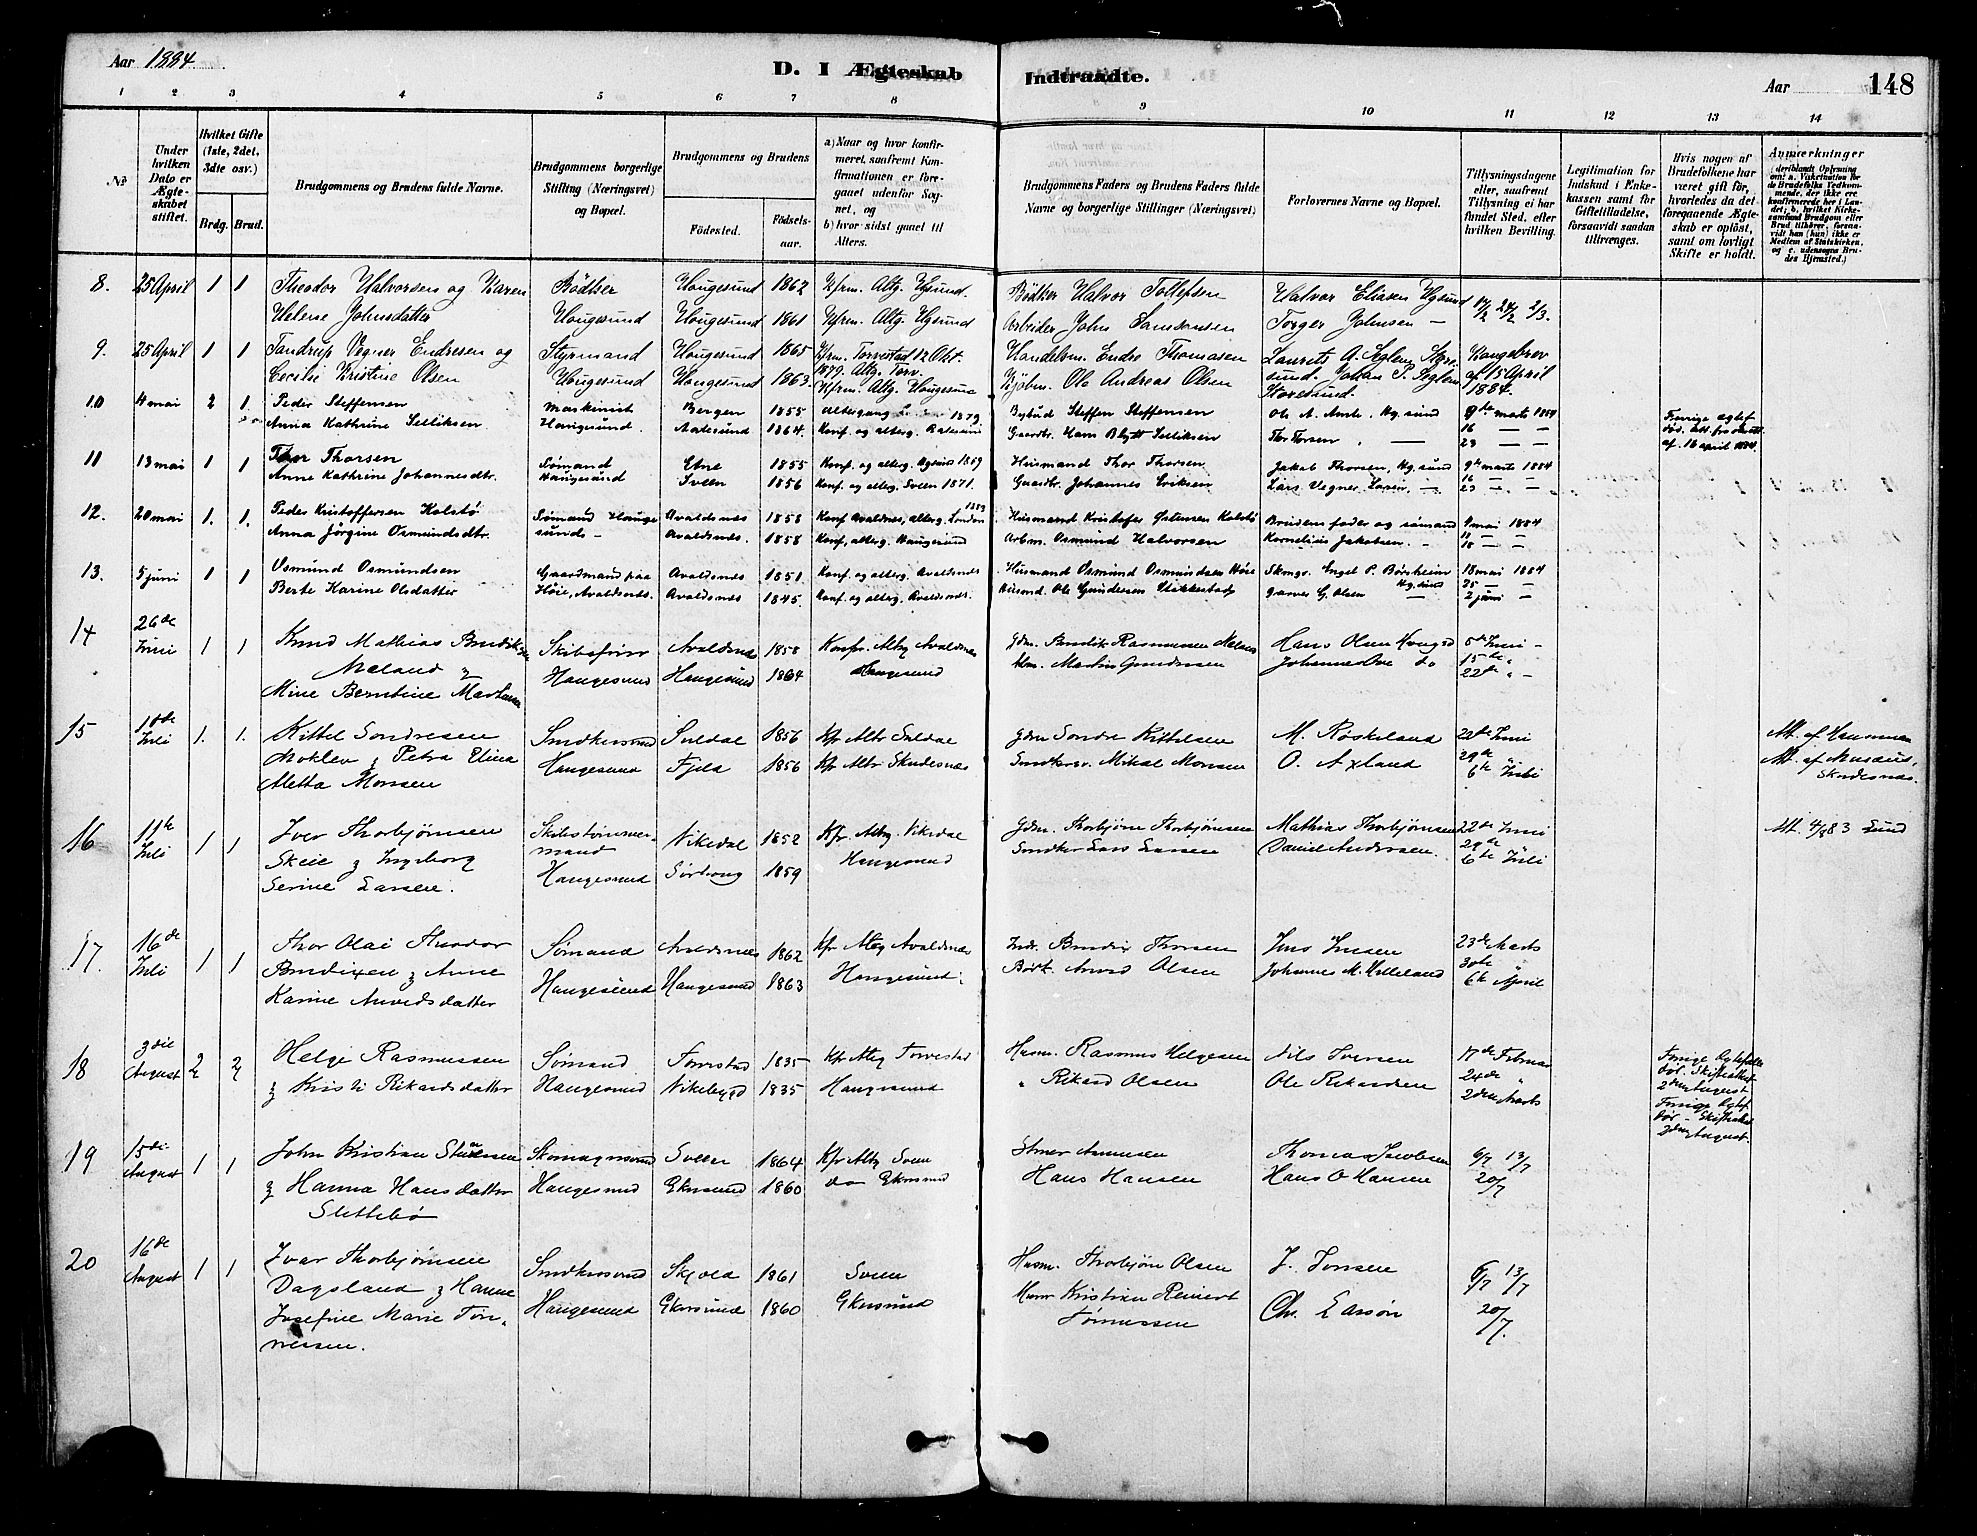 Aar 1884
D. I Ægteskab Indtraadte.
Aar
148
1 2 3 4 5 6 7 8 9 10 11 12 13 14
No
Under hvilken Dato er Ægteskabet stiftet.
Hvilket Gifte (1ste, 2det, 3dte osv.)
Brdg. Brud.
Brudgommens og Brudens fulde Navne.
Brudgommens borgerlige Stilling (Næringsvei) og Bopæl.
Brudgommens og Brudens
Fødested.
Fødselsaar.
a) Naar og hvor konfirmeret, saafremt Konfirmationen er foregaaet udenfor Sognet, og
b) hvor sidst gaaet til Alters.
Brudgommens Faders og Brudens Faders fulde Navne og borgerlige Stillinger (Næringsvei)
Forlovernes Navne og Bopæl.
Tillysningsdagene eller, saafremt Tillysning ei har fundet Sted, efter hvilken Bevilling.
Legitimation for Indskud i Enkekassen samt for Giftetilladelse, forsaavidt saadan tiltrænges.
Hvis nogen af Brudefolkene har været gift før, hvorledes da det foregaaende Ægteskab er opløst, samt om lovligt Skifte er holdt.
Anmærkninger
8. 25 April 1 1 Theodor Halvorsen og Karen Bødker Hougesund 1862 Kfrm. Altg. Hgsund. Bødker Halvor Tollefsen Halvor Eliasen Hgsund 17/2 24/2 2/3.
Helene Johnsdatter Hougesund Hougesund 1861 Kfrm. Altg. Hgsund Arbeider John Samsonsen Torger Johnsen —
9. 25 April 1 1 Tandrup Vegner Endresen og Styrmand Hougesund 1865 Kfrm. Torvestad 12 Okt. Handelsm. Endre Thomasen Laurits A. Seglem, Store- Kongebrev
1879. Altg. Torv. sund. Johan P. Seglem af 15 April
Cecilie Kristine Olsen Hougesund Hougesund 1863. Kfrm. Altg. Hougesund Kjøbm. Ole Andreas Olsen Storesund. 1884.
10 4 mai 2 1. Peder Steffensen Maskinist Bergen 1855 Altergang 1879 Bybud Steffen Steffensen Ole A. Hg.sund 9de marts 1884 Forrige ægtef.
Anna Kathrine Selliksen Haugesund. Aalesund 1864. Konf. og alterg. Aalesund Gaardbr. Hans Blytt Selliksen Thr. Torsen — 16 — — død.
23 — — af 16 april 1884.
11 13 mai 1 1 Thor Thorsen Sømand Etne 1855 Konf. og alterg. Hgsund 1859 Husmand Thor Thorsen Jakob Thorsen, Hg.sund 9de marts 1884
Anne Kathrine Johannesdtr. Haugesund Sveen 1856 Konf. og alterg. Sveen 1871. Gaardbr. Johannes Eriksen Lars Vegner Larsen — 16 — —
23 — —
12. 20 mai 1. 1. Peder Kristoffersen Kolstø Sømand Hauge- Avaldsnes 1858 Konf. Avaldsnes, alterg. London 1883 Husmand Kristofer Østensen Kolstø Brudens fader og sømand 4 mai 1884
Anna Jørgine Osmundsdtr. sund - Avaldsnes. 1858 Konf., alterg. Haugesund Arbm. Osmund Halvorsen Kornelius Jakobsen. - 11 — —
18 — —
13. 5 juni 1 1 Osmund Osmundsen Gaardmand paa Avaldsnes 1851. Konf. og alterg. Avaldsnes Husmand Osmund Osmundsen Høie Skongr. Engel P. Børsheim 18 mai 1884
Berte Karine Olsdatter Høie, Avaldsnes. Avaldsnes 1845. Konf. og alterg. Avaldsnes. Husmd. Ole Gundersen Stakkestad Garver G. Olsen Hg.sund 25 — —
2 juni —
14 26de Juni 1 1 Knud Mathias Bendiksen Skibsfører Avaldsnes 1858 Konfr. Altg Avaldsnes Gdm. Bendik Rasmussen Melnes Hans Olsen Haugsd 8de Juni -
Meland & Haugesund Haugesund 1864 Haugesund Martin Gundersen Johannes Ove do 15de „
Mine Berntine Martinsen 22de „ -
15 10de Juli 1. 1. Kittel Sondresen Snedkersvend Suldal 1856 Kfr Altr Suldal Gdm Sondre Kittelsen M. Røskeland 22de Juni Att. af
Mokleiv & Petra Elina Haugesund Fjeld 1856 Kfr Altr Skudesnæs Snedkersv. Mikal Monsen O. Axland 29de Att. af Musæus,
Metta Monsen 6te Juli Skudesnæs.
16 11te Juli 1 1 Iver Thorbjørnsen Skibstømmer- Vikedal 1852 Kfr Altg. Vikedal Gdm. Thorbjørn Thorbjørnsen Mathias Thorbjørnsen 22de Juni Att. 4/8 83 Lund
Skeie & Ingeborg mand Haugesund Snedker Lars Larsen Daniel Andersen. 29de
Serine Larsen. Haugesund 1859 6te Juli
17. 16de Juli 1 1 Thor Olai Theodor Sømand Avaldsnes 1862 Kfr Altg Avaldsnæs Bendix Thorsen Jens Jensen 23de Marts
Bendixen & Anne Haugesund Haugesund 1863 Haugesund. Bødk. Anved Olsen Johannes M. Helleland 30te
Karine Anvedsdatter 6te April
18 3die August 2 2 Helge Rasmussen Sømand Torvestad 1835 Kfr Altg Torvestad Husm. Rasmus Helgesen Nils Iversen 17de Februar Forrige Ægtefælle
& Kristi Rikardsdatter Haugesund Vikebygd 1835 Haugesund „ Rikard Olsen Ole Rikardsen 24de „ død. Skifteattest
2den Marts 2den August
Forrige Ægtef.
død - Skifteattest
2den August.
19 15de August 1 1 John Kristian Skomagersvend Sveen 1864 Kfr Altg Sveen Thomas Jacobsen 6/7 13/7
& Hanna Hansdatter Haugesund Ekersund 1860 do Ekersund Hans Hansen Hans O Hansen 20/7
Slettebø
20 16de August 1 1 Ivar Thorbjørnsen Snedkersvend Skjold 1861 Sveen Husm. Thorbjørn Olsen J. Jonsen 6/7 13/7
Dagsland & Hanne Haugesund Ekersund 1860 Ekersund Kristian Reinert Chr. Larsen 20/7.
Josefine Marie Tøn- Tønnessen
nessen.